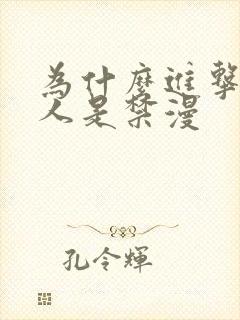 為什麼進擊
人是禁漫
孔令輝